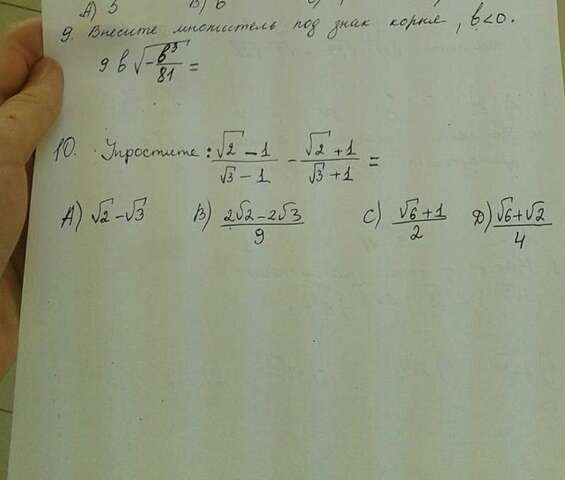 A) 5 B) 6
9. Внесите множитель под знак корня, b<0.
9b√(-b³/81) =
10. Упростите: (√2 - 1)/(√3 - 1) - (√2 + 1)/(√3 + 1) =
A) √2-√3 B) (2√2-2√3)/9 C) (√6+1)/2 D) (√6+√2)/4